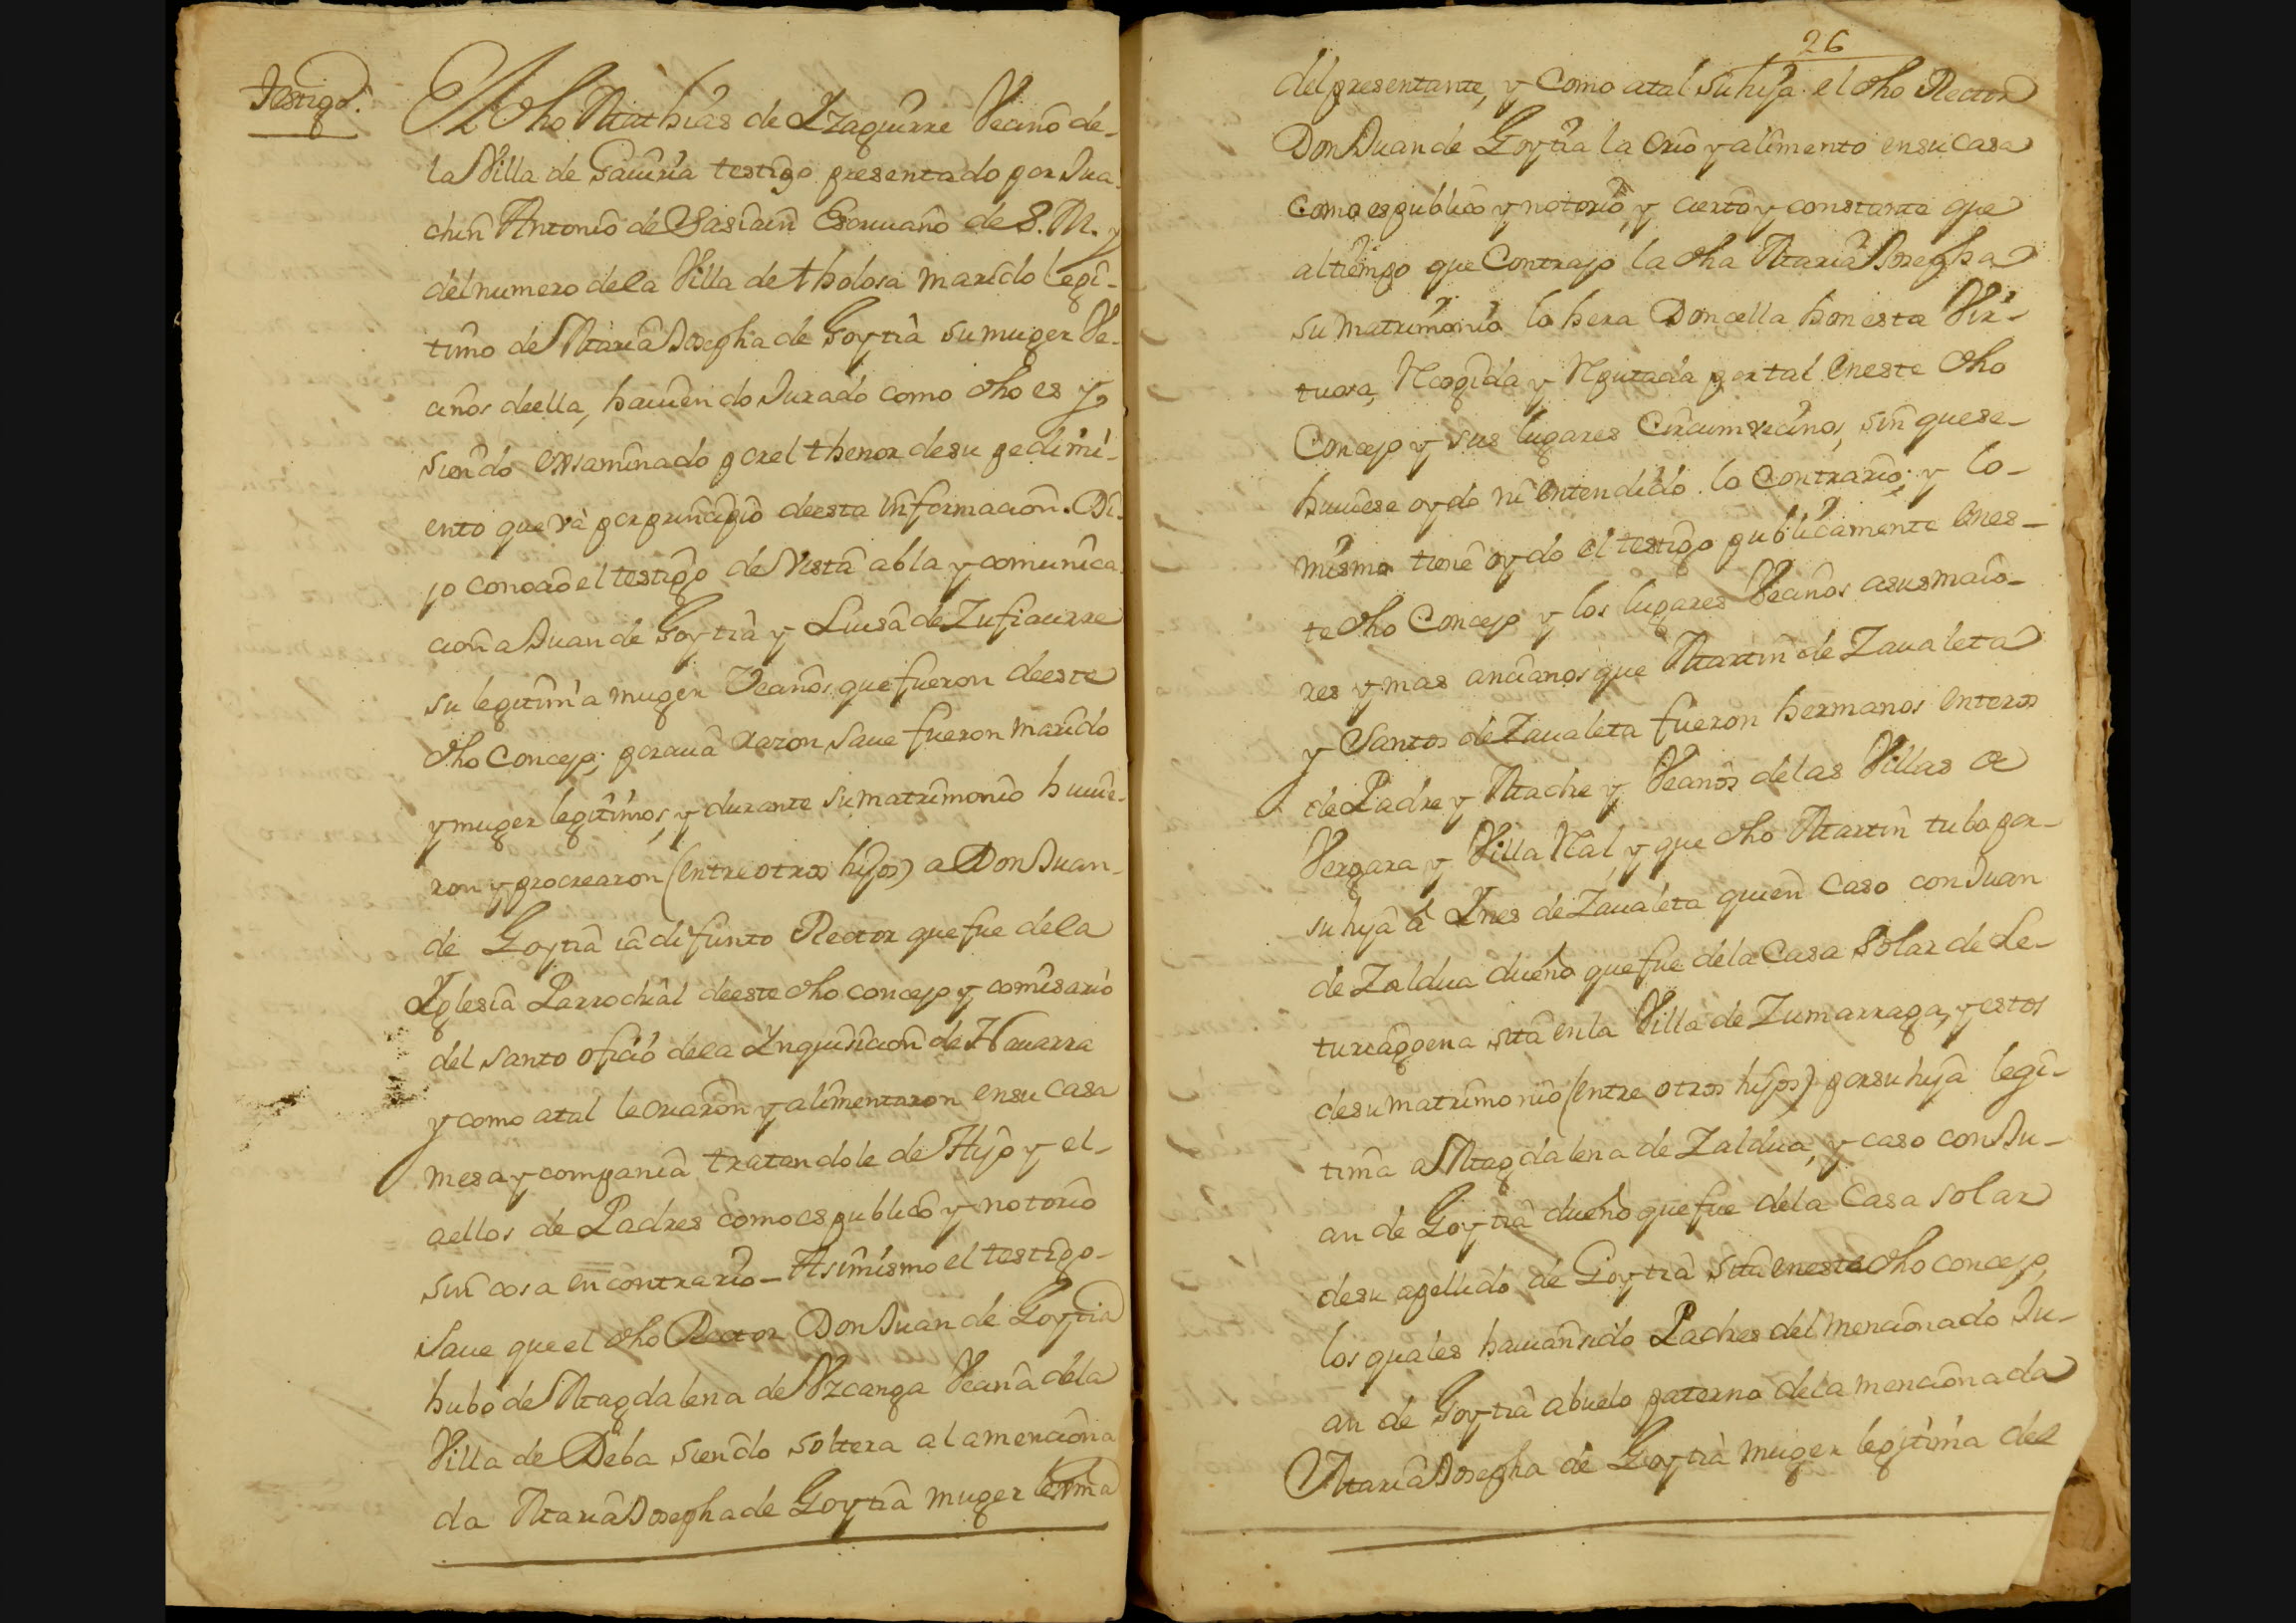 Testigo.
El dho Mathias de Yzaguirre Vecino de-
la Villa de Gaviria testigo presentado por Jua-
chin Antonio de Sasiain Escriuano de S. M. y
del numero dela Villa de tholosa marido legi-
timo de Maria Josepha de Goytia su muger Ve-
cinos deella, hauiendo Jurado como dho es y
siendo exsaminado por el thenor desu pedimi-
ento que và por principio deesta informacion. Di-
jo conocio el testigo de Vista abla y comunica-
cion a Juan de Goytia y Luisa de Zufiaurre
su legitima muger Vecinos que fueron deeste
dho Concejo; por cuia razon saue fueron marido
y muger legitimos, y durante su matrimonio huuie-
ron y procrearon (entre otros hijos) a Don Juan-
de Goytia ia difunto Rector que fue dela
Yglesia Parrochial deeste dho concejo y comisario
del santo oficio dela Ynquisicion de Nauarra
y como atal le criaron y alimentaron en su casa
mesa y compania tratandole de Hijo y el-
aellos de Padres como es publico y notorio
sin cosa en contrario - Asimismo el testigo-
saue que el dho Rector Don Juan de Goytia
hubo de Magdalena de Vzcanga Vecina dela
Villa de Deba siendo soltera a la menciona
da Maria Josepha de Goytia muger lexma
26
del presentante, y Como atal su hija el dho Rector
Don Juan de Goytia la crio y alimento en su casa
como es publico y notorio, y cierto y constante que
al tiempo que Contrajo la dha Maria Josepha
su matrimonio lo hera Doncella honesta Vir-
tuosa, Recogida y Reputada por tal en este dho
Concejo y sus lugares Circumvecinos, sin que se-
huuiese oydo ni entendido lo Contrario; y lo-
mismo tiene oydo el testigo publicamente en es-
te dho Concejo y los lugares Vecinos asus maio-
res y mas ancianos que Martin de Zaualeta
y Santos de Zaualeta fueron hermanos enteros
de Padre y Madre y Vecinos delas Villas de
Vergara y Villa Real, y que dho Martin tubo por-
su hija à Ynes de Zaualeta quien Caso con Juan
de Zaldua dueño que fue dela Casa Solar de Le-
turiagoena sita en la Villa de Zumarraga, y estos
de su matrimonio (entre otros hijos) por su hija legi-
tima a Magdalena de Zaldua, y caso con Ju-
an de Goytia dueño que fue dela Casa solar
desu apellido de Goytia sita en este dho concejo,
los quales hauian sido Padres del mencionado Ju-
an de Goytia abuelo paterno dela mencionada
Maria Josepha de Goytia muger legitima del